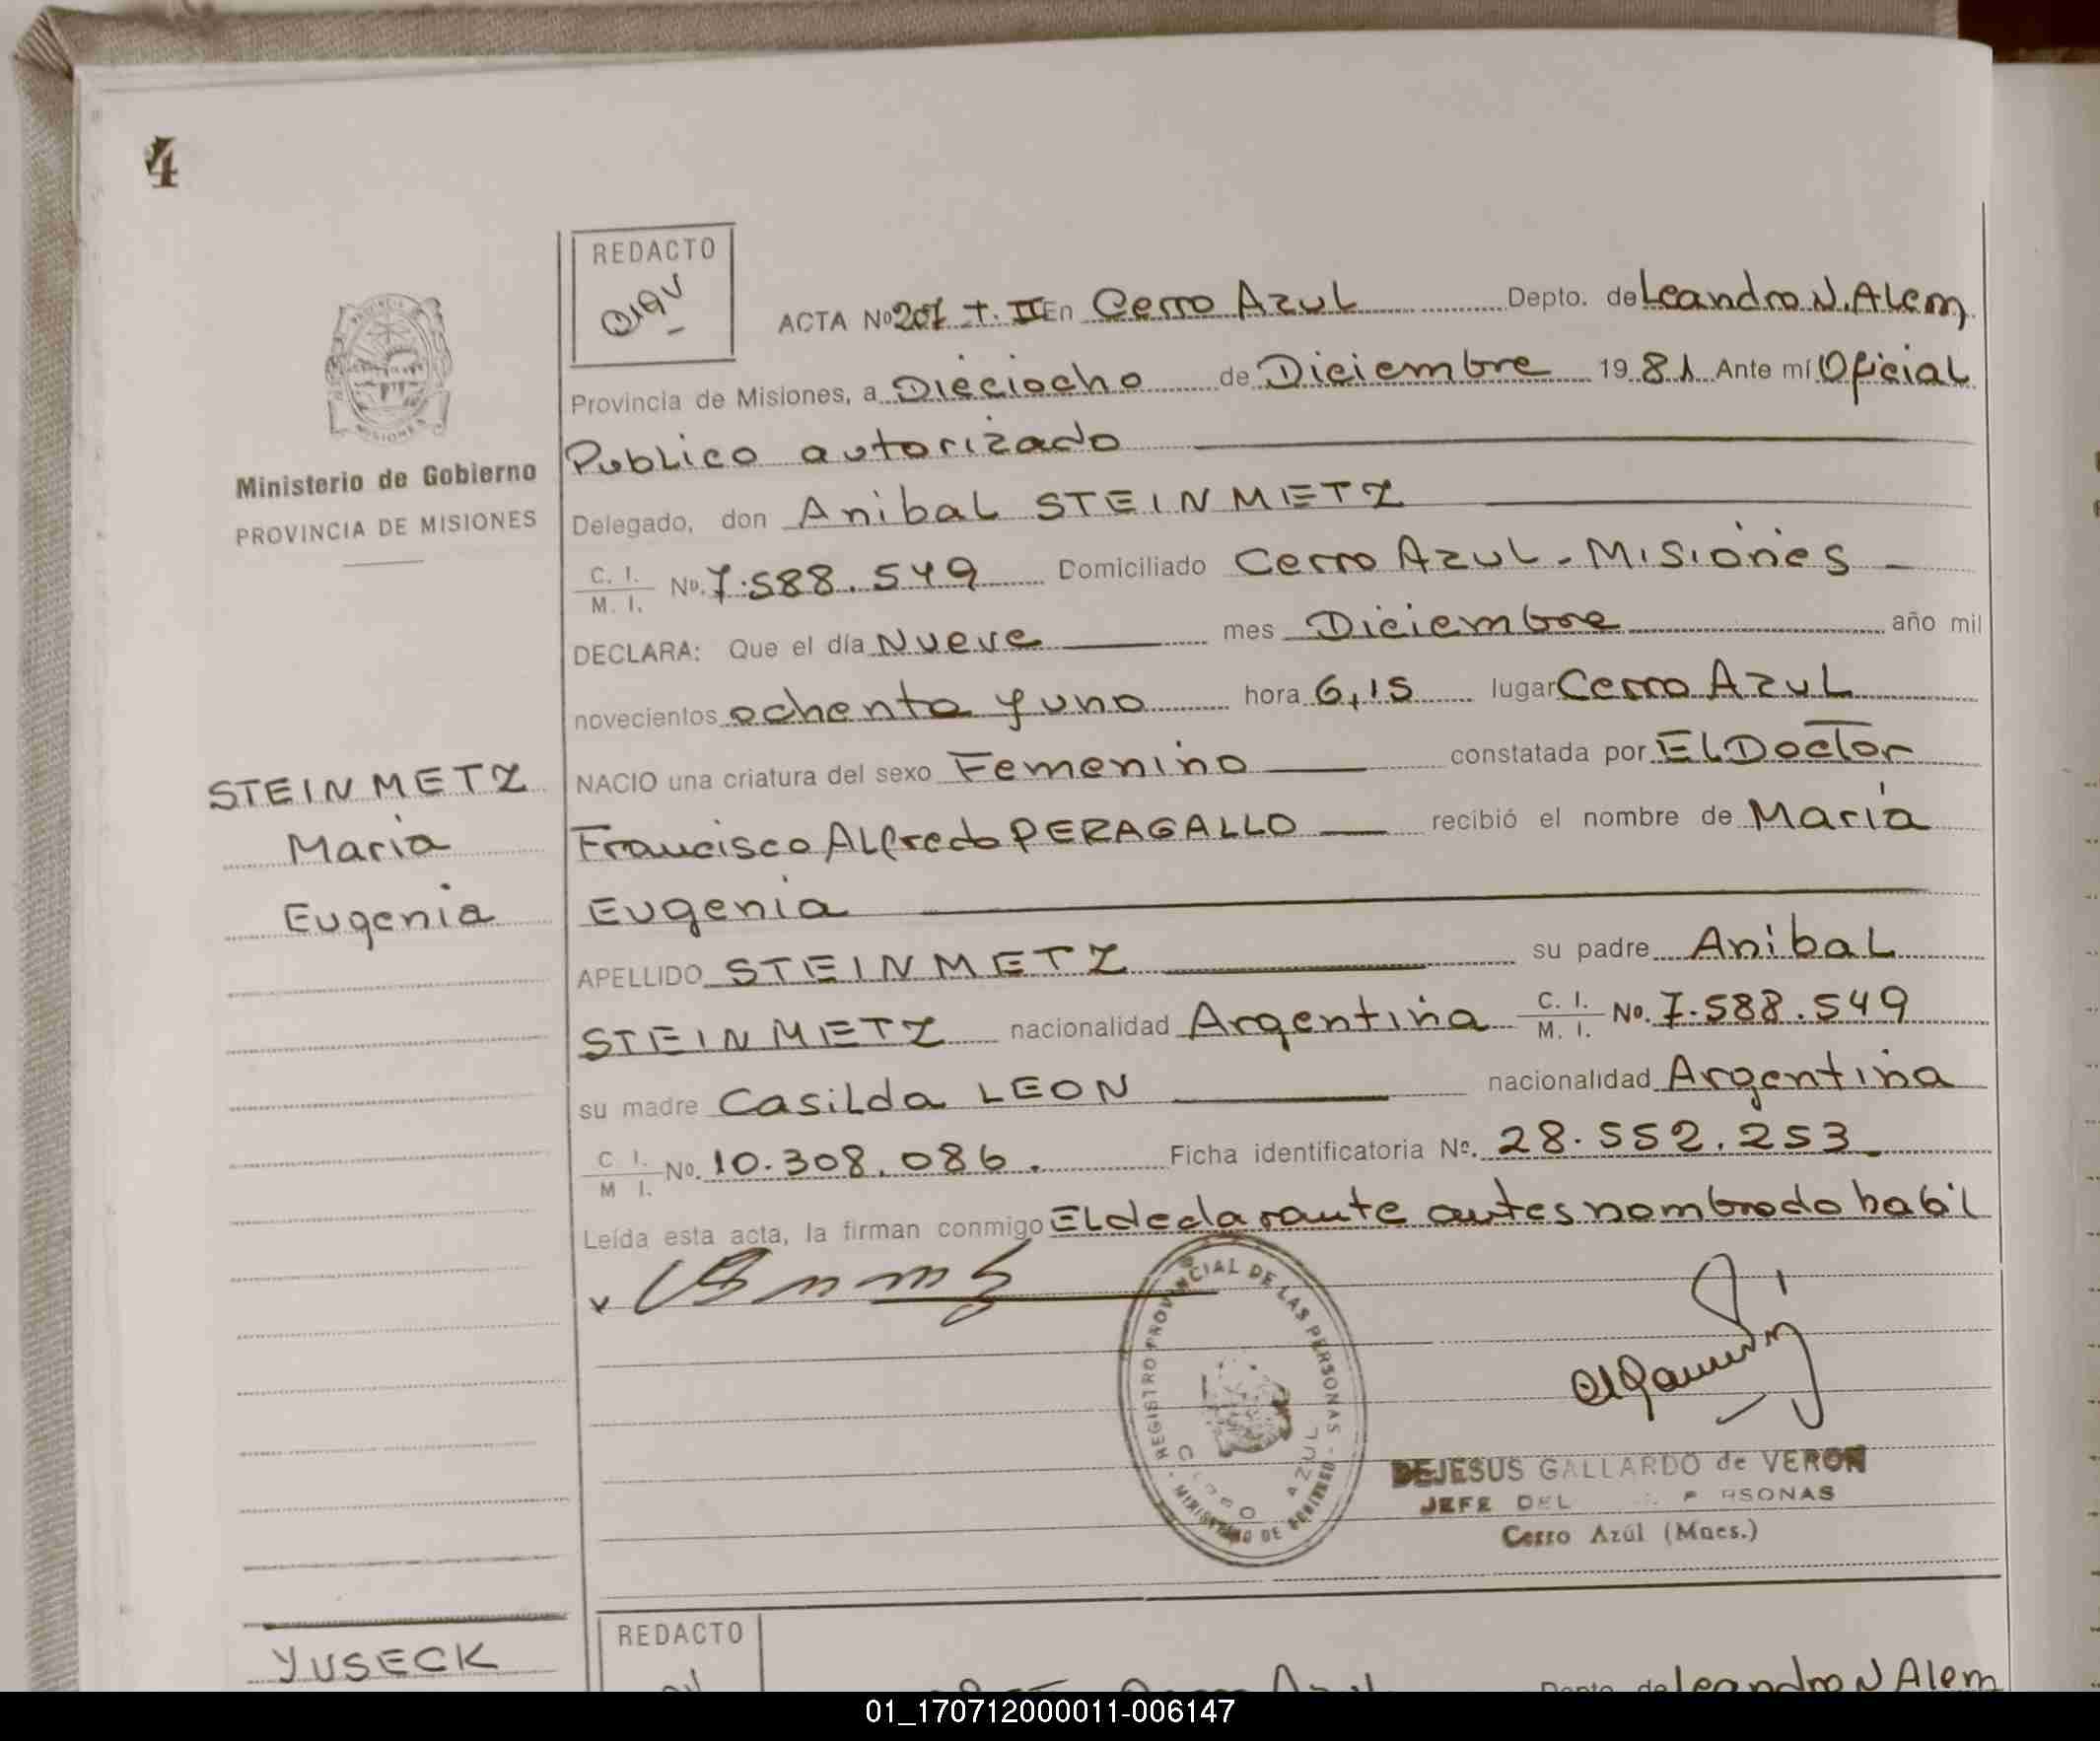 4
REDACTO
ACTA Nº 207 T. II En Cerro Azul Depto. de Leandro N. Alem
Provincia de Misiones, a Dieciocho de Diciembre 1981 Ante mí Oficial
Publico autorizado
Ministerio de Gobierno
PROVINCIA DE MISIONES
Delegado, don Anibal STEINMETZ
C. I. / M. I. Nº. 7.588.549 Domiciliado Cerro Azul - Misiones
DECLARA: Que el día Nueve mes Diciembre año mil
novecientos ochenta y uno hora 6,15 lugar Cerro Azul
STEINMETZ
Maria
Eugenia
NACIO una criatura del sexo Femenino constatada por El Doctor
Francisco Alfredo PERAGALLO recibió el nombre de María
Eugenia
APELLIDO STEINMETZ su padre Anibal
STEINMETZ nacionalidad Argentina C. I. / M. I. Nº. 7.588.549
su madre Casilda LEON nacionalidad Argentina
C I. / M I. Nº. 10.308.086. Ficha identificatoria Nº. 28.552.253
Leída esta acta, la firman conmigo El declarante antes nombrado habil
REGISTRO PROVINCIAL DE LAS PERSONAS - MINISTERIO DE GOBIERNO
CERRO AZUL
DEJESUS GALLARDO de VERON
JEFE DEL PERSONAS
Cerro Azúl (Mnes.)
YUSECK
REDACTO
Depto. de Leandro N Alem
01_170712000011-006147